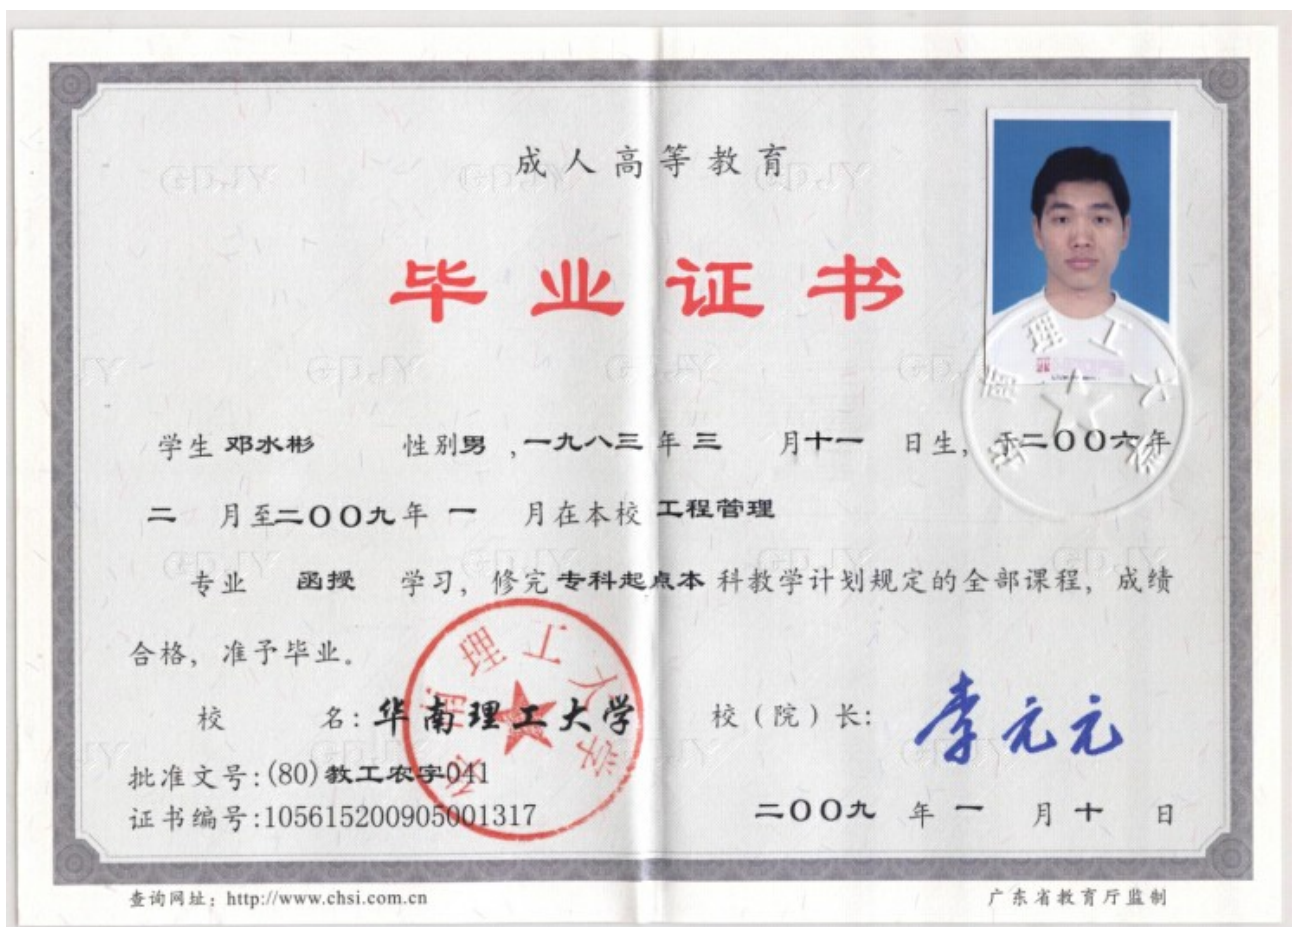 成人高等教育
毕业证书
学生 邓水彬 性别男 ,一九八三 年 三 月十一 日生, 于二〇〇六年
二 月至二〇〇九年 一 月在本校 工程管理
专业 函授 学习, 修完 专科起点本 科教学计划规定的全部课程, 成绩
合格, 准予毕业。
校 名: 华南理工大学 校(院)长: 李元元
批准文号:(80)教工农字041
证书编号:105615200905001317
二〇〇九 年 一 月 十 日
华南理工大学
华南理工大学
查询网址: http://www.chsi.com.cn 广东省教育厅监制